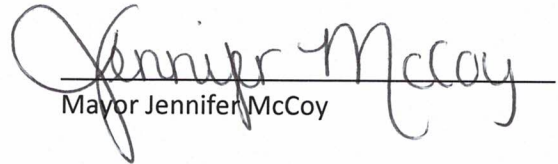 Jennifer McCoy
Mayor Jennifer McCoy